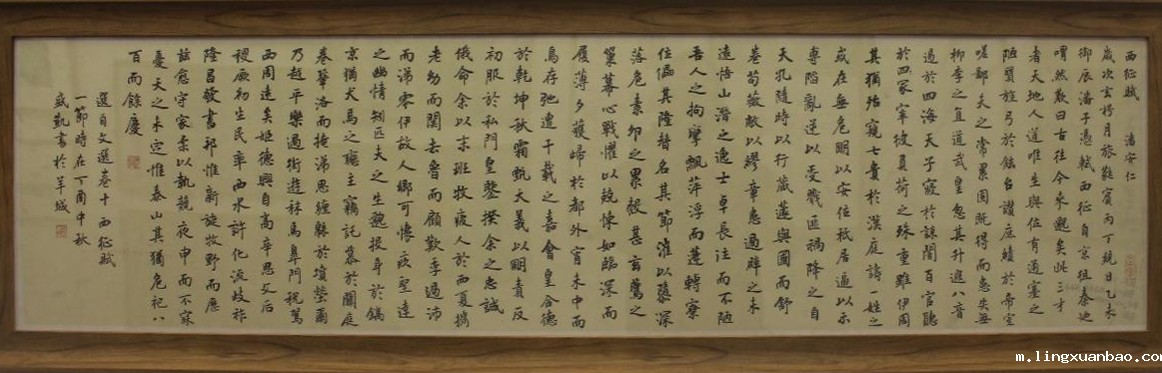 西征賦 潘安仁
歲次玄枵月旅蕤賓丙丁統日乙未
御辰潘子憑軾西征自京徂秦迺
喟然歎曰古往今來邈矣此三才
者天地人道唯生與位有通塞之
陋質旌弓於鉉台讚庶績於帝室
嗟鄙夫之常累固既得而患失無
柳季之直道武皇忽其升遐八音
遏於四海天子寢於諒闇百官聽
於冢宰彼負荷之殊重雖伊周
其猶殆窺七貴於漢庭譸一姓之
或在無危明以安位祗居逼以示
專陷亂逆以受戮匪禍降之自
天孔隨時以行藏蘧與國而舒
卷苟蔽微以繆章患過辟之未
遠悟山潛之逸士卓長往而不陋
吾人之拘攣飄萍浮而蓬轉寮
位儡其隆替名其節漼以隳深
落危素卵之累殼甚玄燕之
巢幕心戰懼以兢悚如臨深而
履薄夕獲歸於都外宵未中而
鳥存弛遭千載之嘉會皇合德
於乾坤秋霜甄大義以明責反
初服於私門皇鑒揆余之忠誠
俄命余以末班牧疲人於西夏攜
老幼而關去魯而顧歎季過沛
而涕零伊故人鄉可懷疚聖達
之幽情矧匹夫之生邈投身於鎬
京猶犬馬之戀主竊託慕於闕庭
眷鞏洛而掩涕思纏緜於墳塋爾
乃越平樂過街遊秣馬皋門稅駕
西周遠矣姬德興自高辛思文后
稷厥初生民率西水許化流岐祚
隆昌發舊邦惟新旋牧野而歷
茲愈守柔以執競夜申而不寐
憂天之未定惟泰山其猶危祀八
百而餘慶
選自文選卷十西征賦
一節時在丁酉中秋
盛凱書於羊城
m.lingxuanbao.com